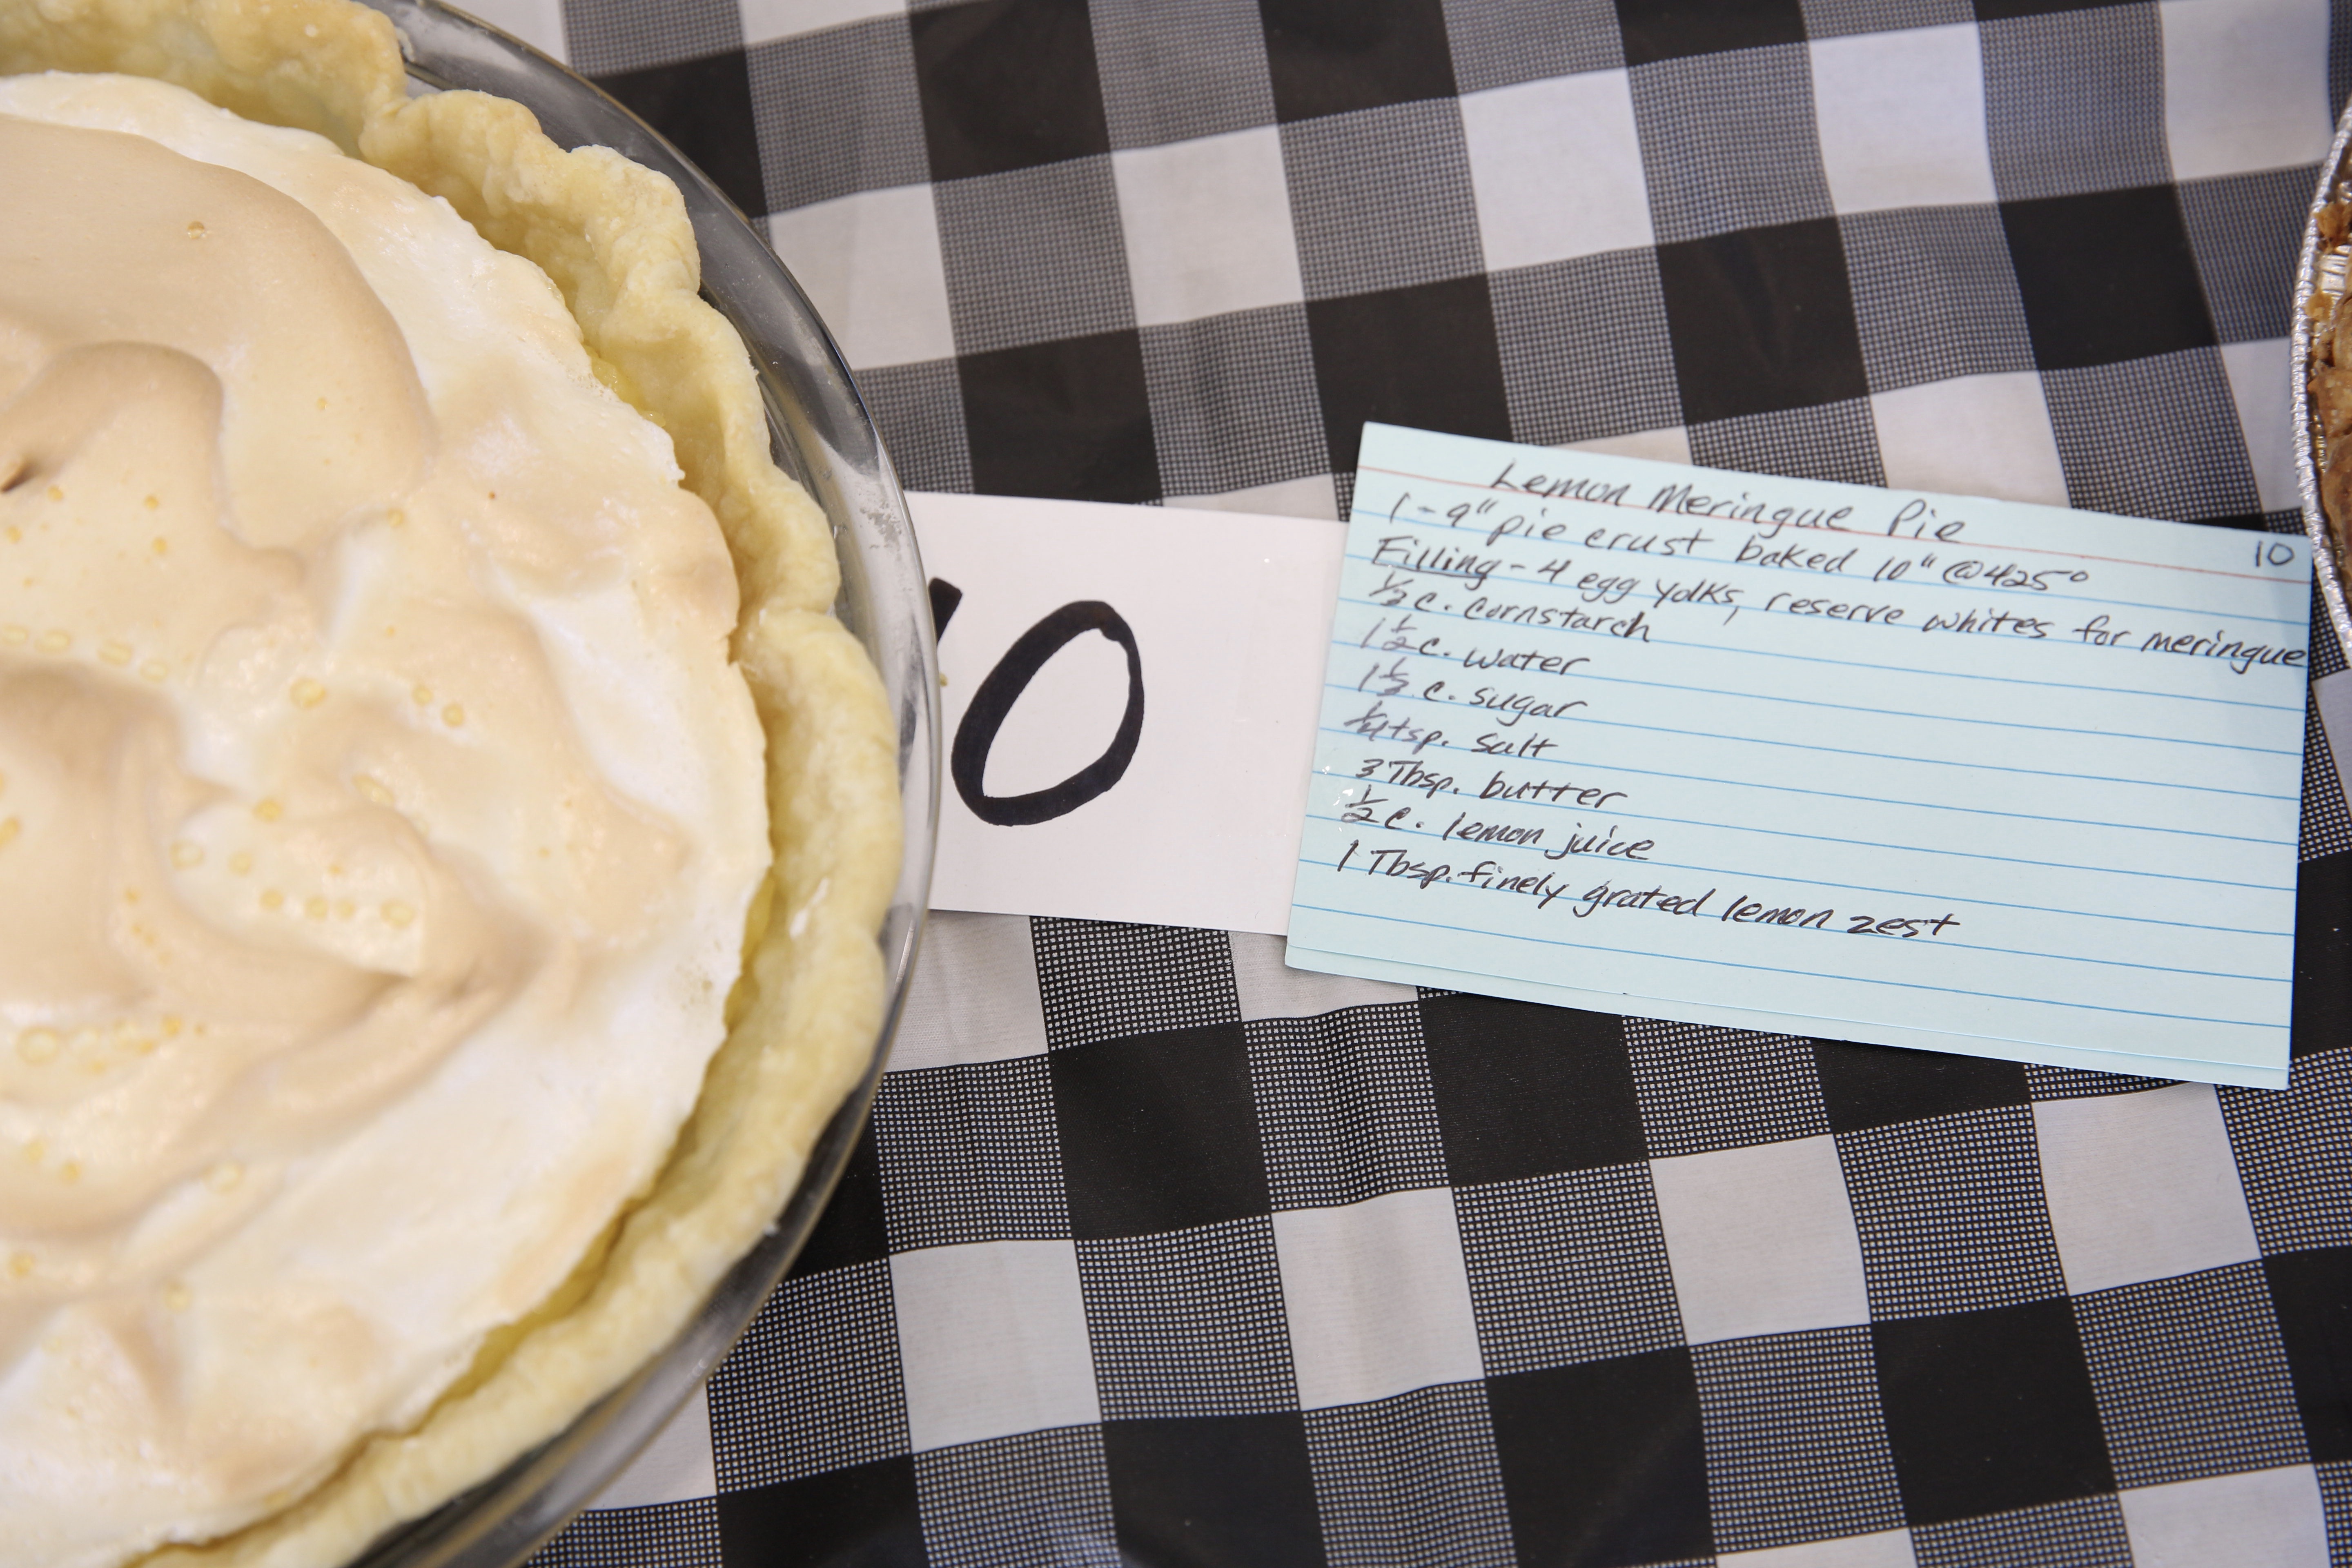 10
Lemon Meringue Pie
10
1-9" pie crust baked 10" @425°
Filling - 4 egg yolks, reserve whites for meringue
1/3 c. cornstarch
1 1/2 c. water
1 1/3 c. sugar
1/4 tsp. salt
3 Tbsp. butter
1/2 c. lemon juice
1 Tbsp. finely grated lemon zest